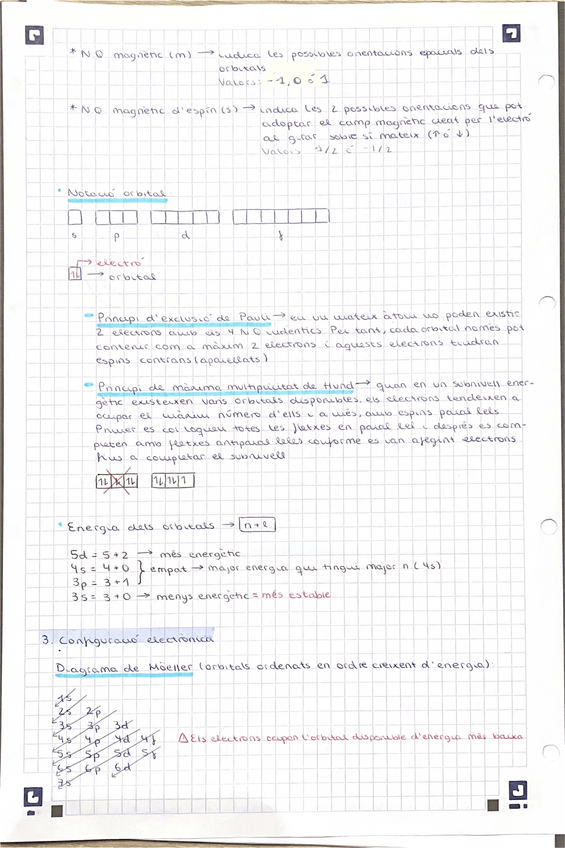 * NQ magnètic (m) → indica les possibles orientacions espacials dels
orbitals
Valors: -1, 0 ó 1
* NQ magnètic d'espín (s) → indica les 2 possibles orientacions que pot
adoptar el camp magnètic creat per l'electró
al girar sobre si mateix (↑ ó ↓)
Valors 1/2 ó -1/2
* Notació orbital
s p d f
→ electró
↑↓ → orbital
- Principi d'exclusió de Pauli → en un mateix àtom no poden existir
2 electrons amb els 4 NQ indentics. Per tant, cada orbital només pot
contenir com a màxim 2 electrons i aquests electrons tindran
espins contraris (aparellats)
- Principi de màxima multiplicitat de Hund → quan en un subnivell ener-
gètic existeixen varis orbitals disponibles, els electrons tendeixen a
ocupar el màxim número d'ells i a més, amb espins paral·lels.
Primer es col·loquen totes les fletxes en paral·lel i després es com-
pleten amb fletxes antiparal·leles conforme es van afegint electrons
fins a completar el subnivell
* Energia dels orbitals → n+l
5d = 5+2 → més energètic
4s = 4+0 } empat → major energia que tingui major n (4s)
3p = 3+1
3s = 3+0 → menys energètic = més estable
3. Configuració electrònica
Diagrama de Möeller (orbitals ordenats en ordre creixent d'energia):
1s
2s 2p
3s 3p 3d
4s 4p 4d 4f
⚠ Els electrons ocupen l'orbital disponible d'energia més baixa
5s 5p 5d 5f
6s 6p 6d
7s